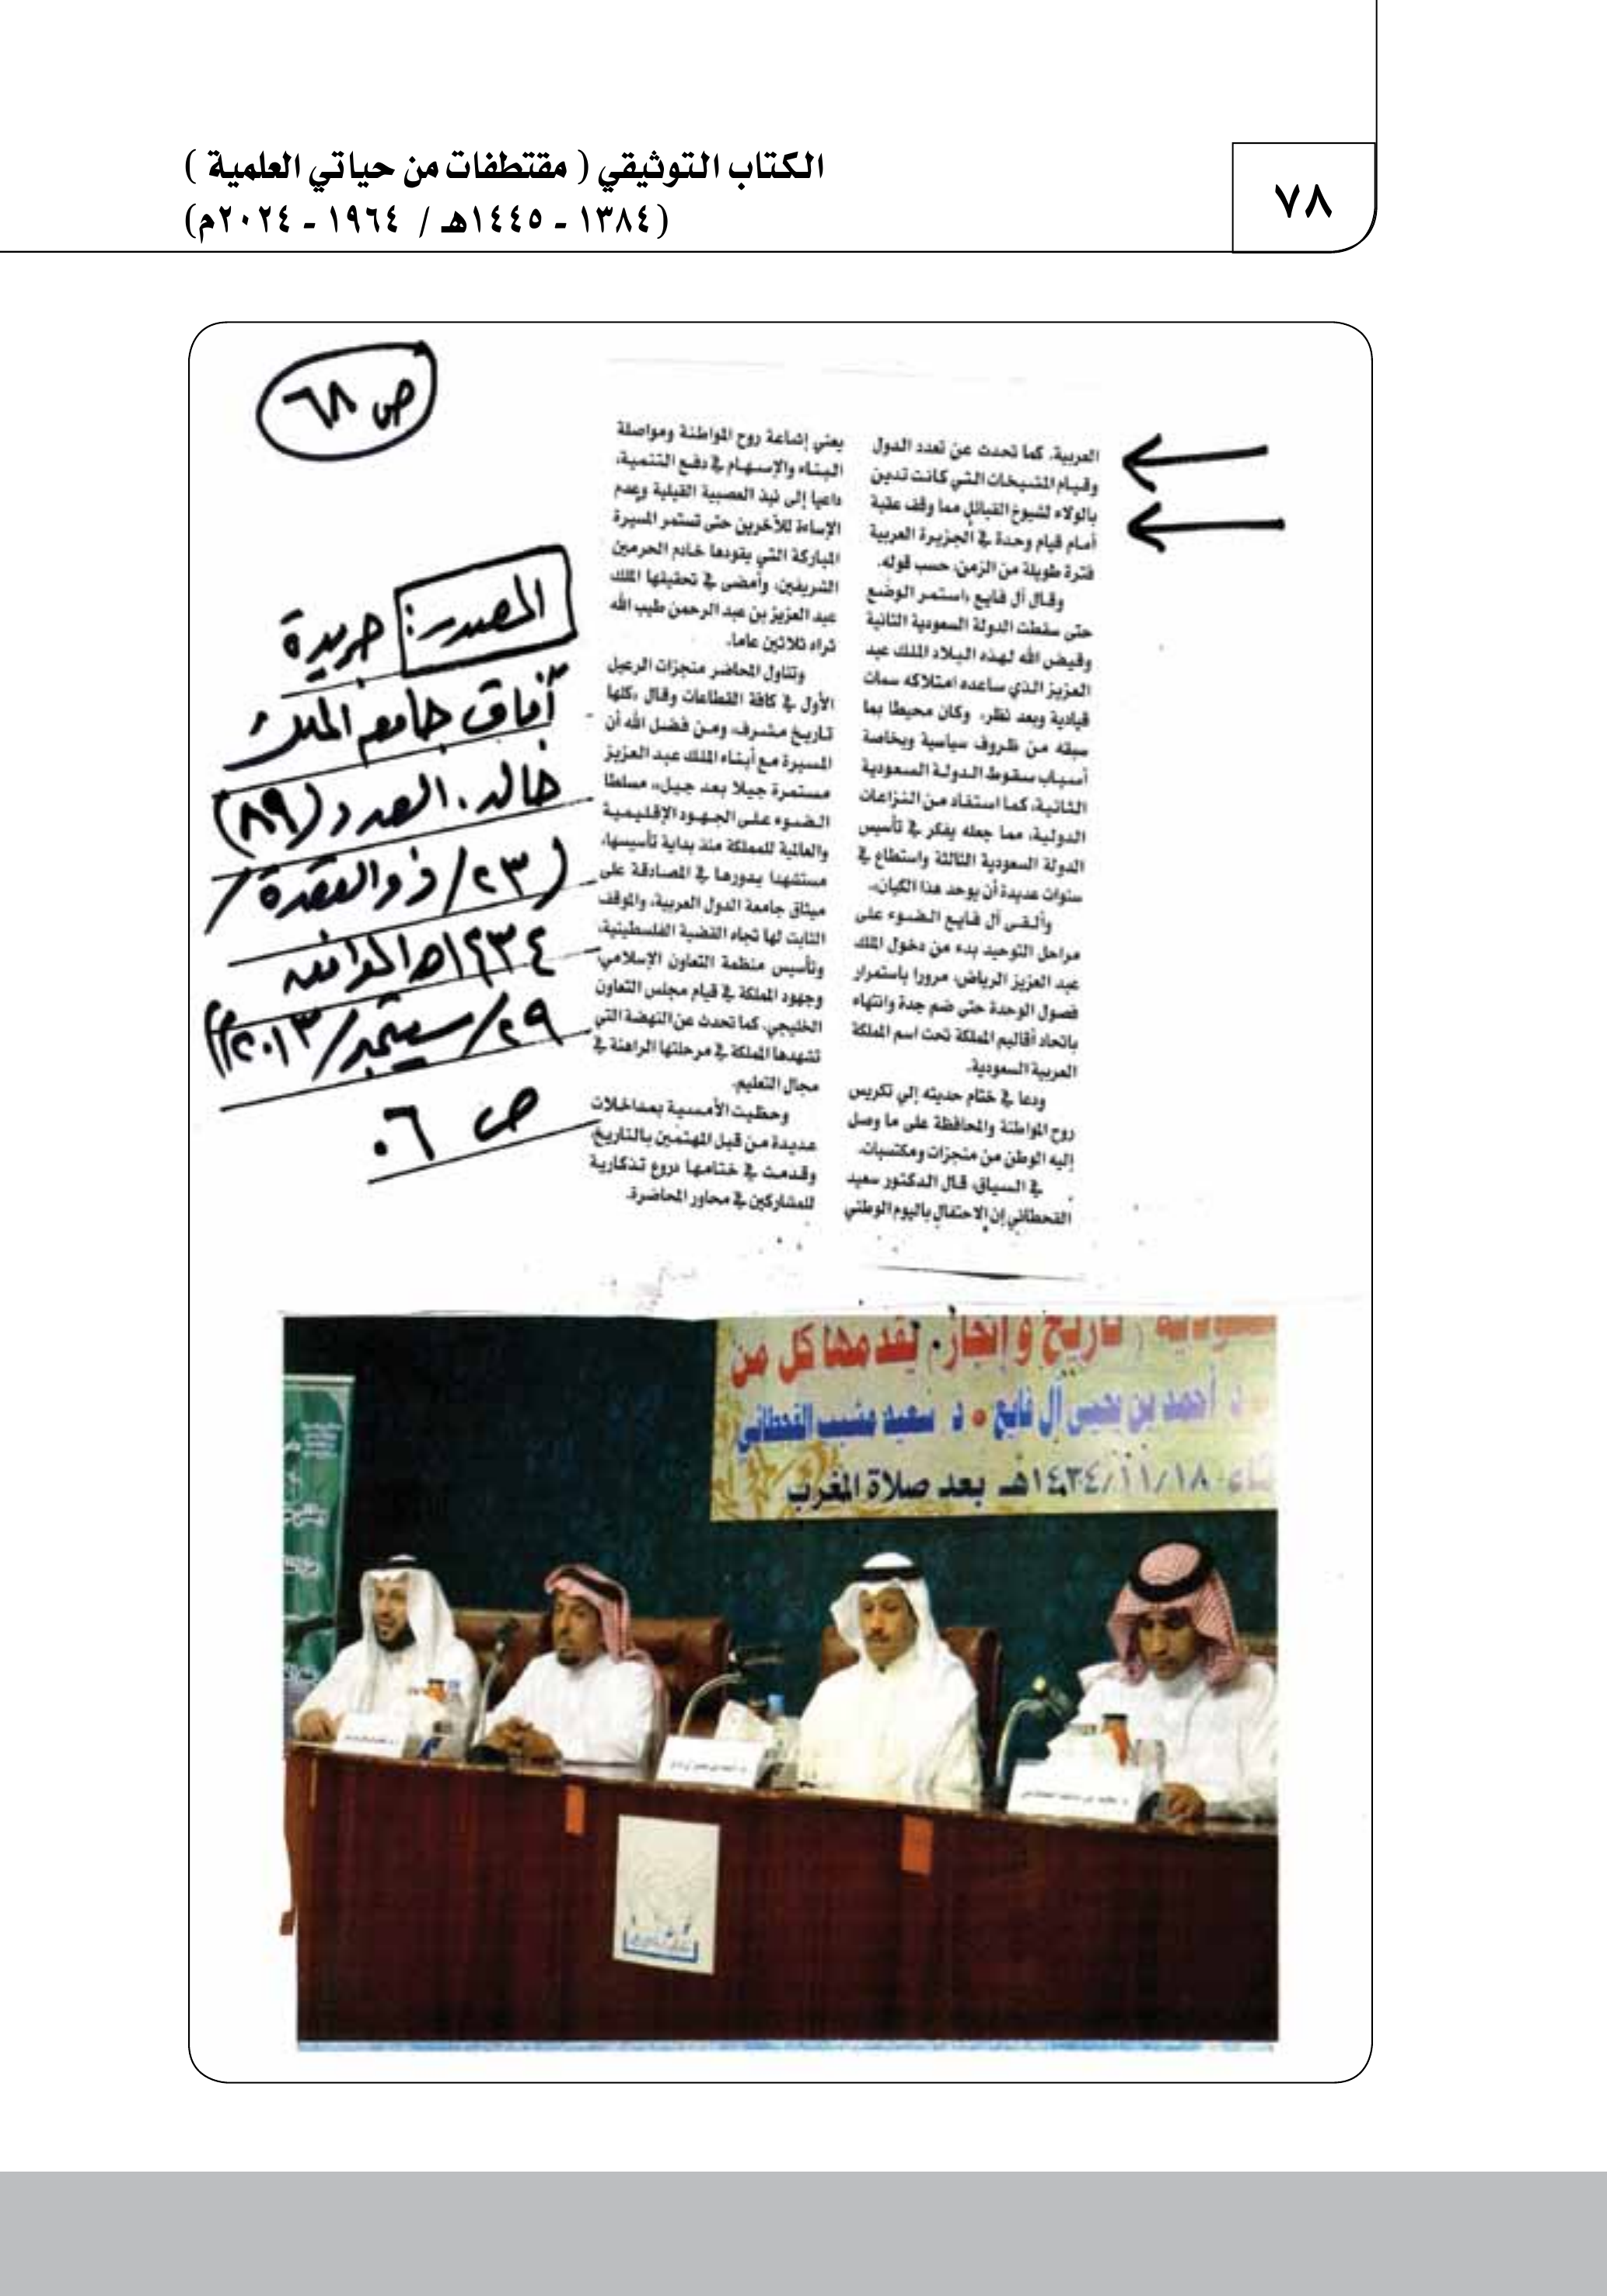 ٧٨
الكتاب التوثيقي ( مقتطفات من حياتي العلمية )
(١٣٨٤ - ١٤٤٥هـ / ١٩٦٤ - ٢٠٢٤م)
ص ٦٨
العربية. كما تحدث عن تعدد الدول
وقيام المشيخات التي كانت تدين
بالولاء لشيوخ القبائل مما وقف عقبة
أمام قيام وحدة في الجزيرة العربية
فترة طويلة من الزمن، حسب قوله.
وقال آل فايع «استمر الوضع
حتى سقطت الدولة السعودية الثانية
وقيض الله لهذه البلاد الملك عبد
العزيز الذي ساعده امتلاكه سمات
قيادية وبعد نظر، وكان محيطا بما
سبقه من ظروف سياسية وبخاصة
أسباب سقوط الدولة السعودية
الثانية، كما استفاد من النزاعات
الدولية، مما جعله يفكر في تأسيس
الدولة السعودية الثالثة واستطاع في
سنوات عديدة أن يوحد هذا الكيان».
وألقى آل فايع الضوء على
مراحل التوحيد بدء من دخول الملك
عبد العزيز الرياض، مرورا باستمرار
فصول الوحدة حتى ضم جدة وانتهاء
باتحاد أقاليم المملكة تحت اسم المملكة
العربية السعودية.
ودعا في ختام حديثه إلي تكريس
روح المواطنة والمحافظة على ما وصل
إليه الوطن من منجزات ومكتسبات.
في السياق، قال الدكتور سعيد
القحطاني إن الاحتفال باليوم الوطني
يعني إشاعة روح المواطنة ومواصلة
البناء والإسهام في دفع التنمية،
داعيا إلى نبذ العصبية القبلية وعدم
الإساءة للآخرين حتى تستمر المسيرة
المباركة التي يقودها خادم الحرمين
الشريفين، وأمضى في تحقيقها الملك
عبد العزيز بن عبد الرحمن طيب الله
ثراه ثلاثين عاما.
وتناول المحاضر منجزات الرعيل
الأول في كافة القطاعات وقال «كلها
تاريخ مشرف، ومن فضل الله أن
المسيرة مع أبناء الملك عبد العزيز
مستمرة جيلا بعد جيل»، مسلطا
الضوء على الجهود الإقليمية
والعالمية للمملكة منذ بداية تأسيسها،
مستشهدا بدورها في المصادقة على
ميثاق جامعة الدول العربية، والموقف
الثابت لها تجاه القضية الفلسطينية،
وتأسيس منظمة التعاون الإسلامي،
وجهود المملكة في قيام مجلس التعاون
الخليجي. كما تحدث عن النهضة التي
تشهدها المملكة في مرحلتها الراهنة في
مجال التعليم.
وحظيت الأمسية بمداخلات
عديدة من قبل المهتمين بالتاريخ،
وقدمت في ختامها دروع تذكارية
للمشاركين في محاور المحاضرة.
المصدر: جريدة
آفاق جامعة الملك
خالد. العدد (٨٩)
(٢٣/ ذو القعدة/
١٤٣٤هـ الموافق
٢٩/سبتمبر/٢٠١٣م)
ص ٠٦
تاريخ وإنجاز، يقدمها كل من
د أحمد بن يحيى آل فايع • د سعيد مشبب القحطاني
١٤٣٤/١١/١٨هـ بعد صلاة المغرب